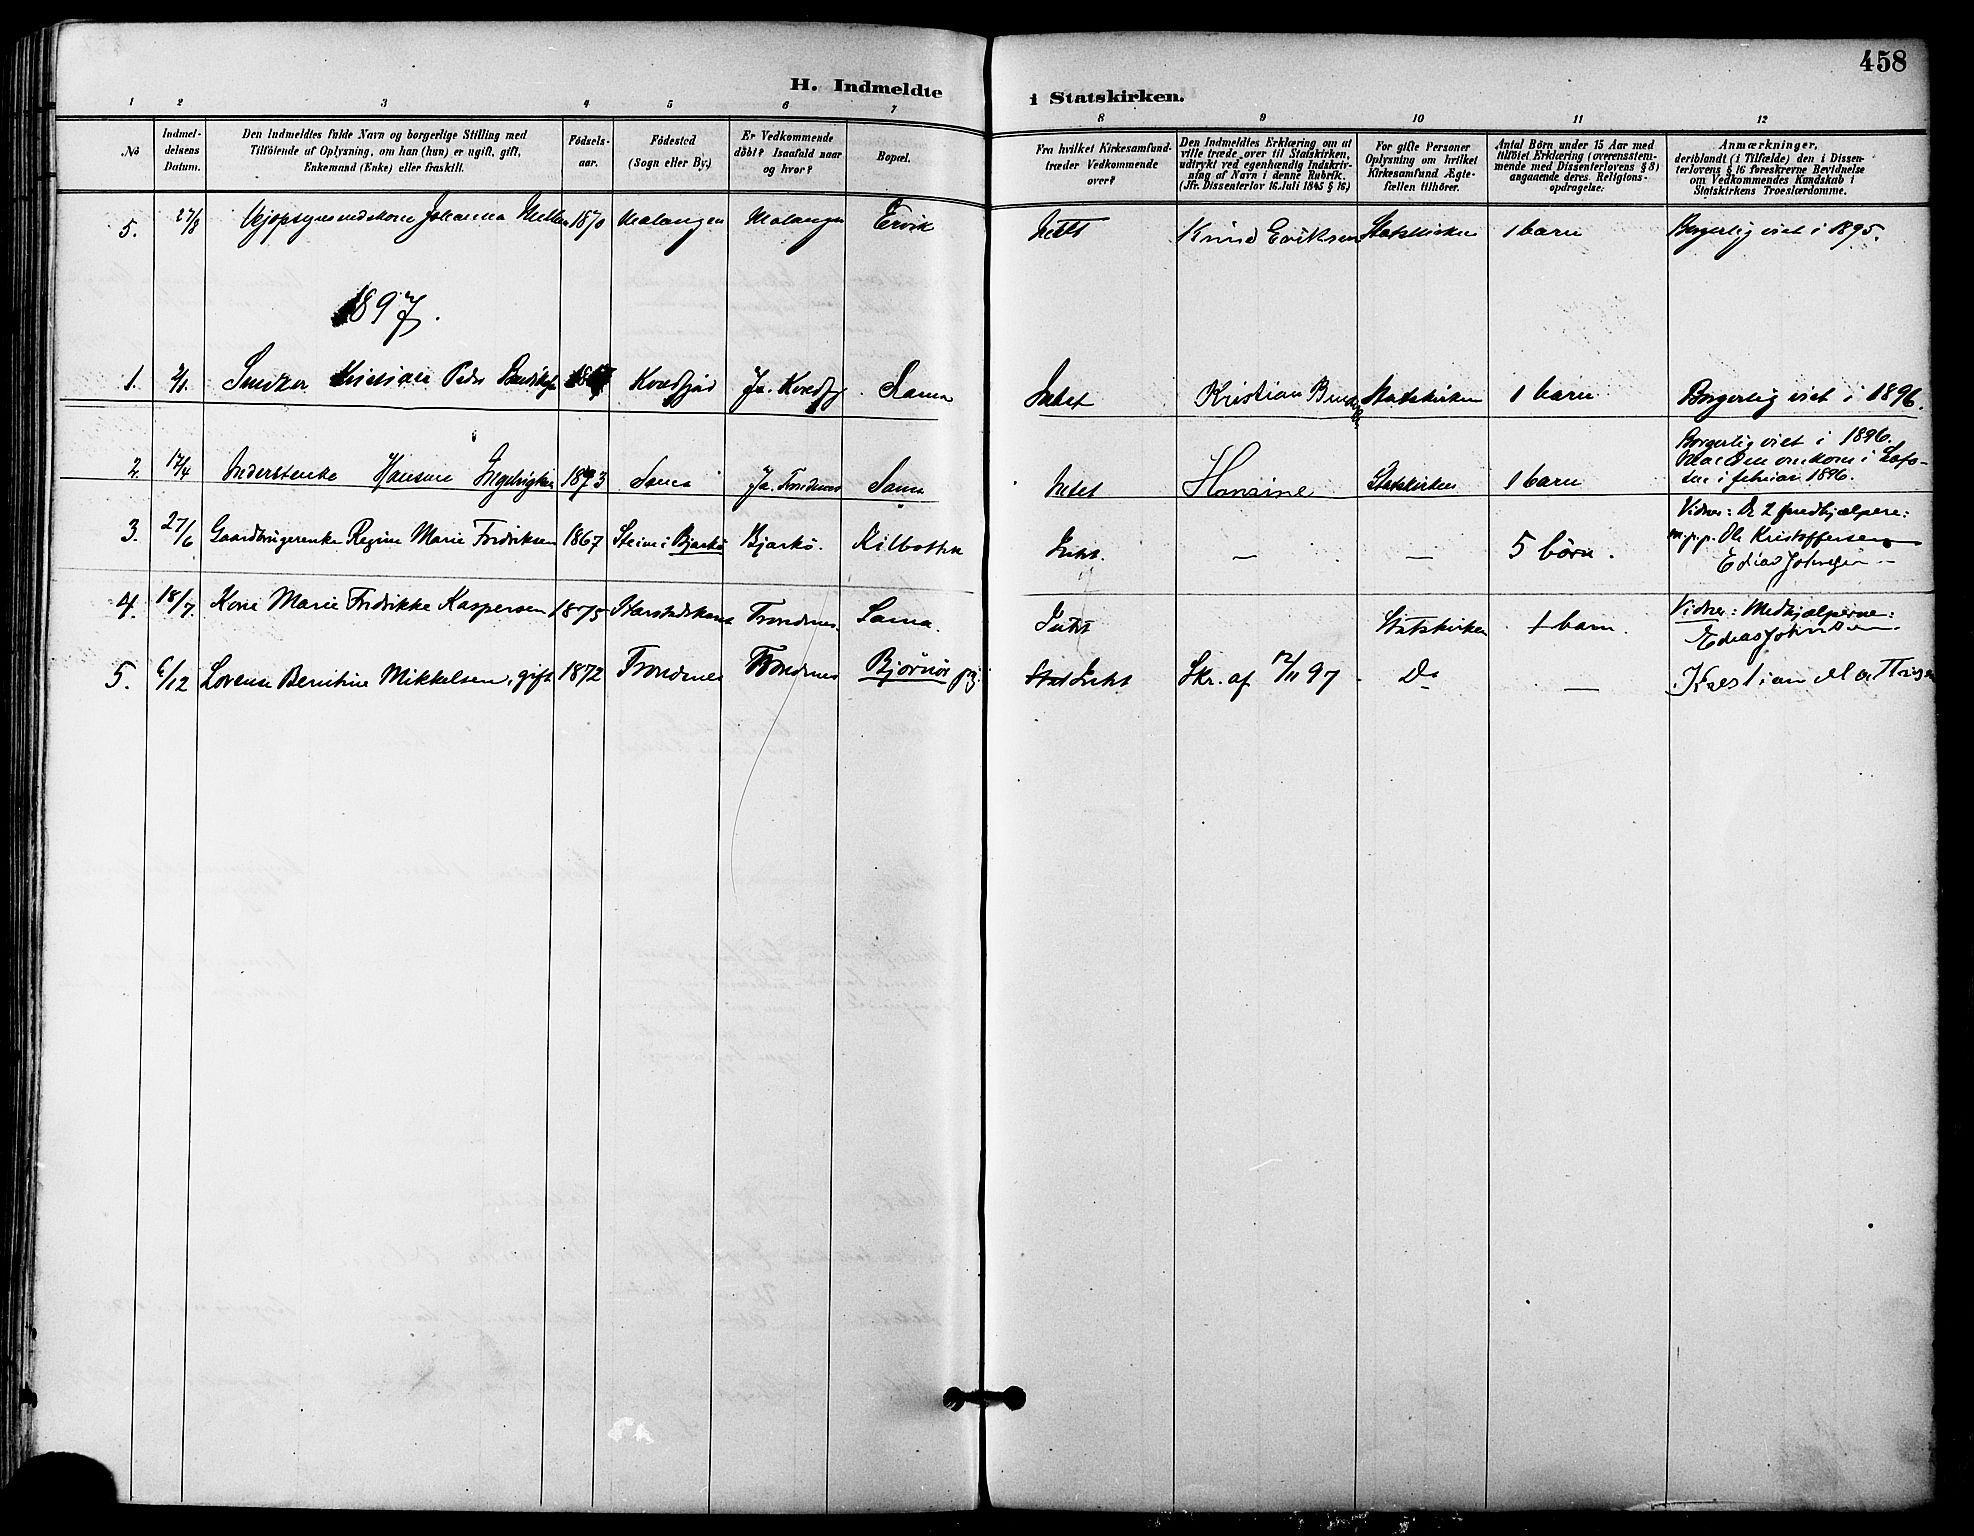 458
H. Indmeldte i Statskirken.
1 2 3 4 5 6 7 8 9 10 11 12
No
Indmel-
delsens
Datum.
Den Indmeldtes fulde Navn og borgerlige Stilling med
Tilföiende af Oplysning, om han (hun) er ugift, gift,
Enkemand (Enke) eller fraskilt.
Födsels-
aar.
Födested
(Sogn eller By.)
Er Vedkommende
döbt? Isaafald naar
og hvor?
Bopæl.
Fra hvilket Kirkesamfund-
træder Vedkommende
over?
Den Indmeldtes Erklæring om at
ville træde over til Statskirken,
udtrykt ved egenhændig Indskriv-
ning af Navn i denne Rubrik.
(Jfr. Dissenterlov 16. Juli 1845 § 16)
For gifte Personer
Oplysning om hvilket
Kirkesamfund Ægte-
fællen tilhörer.
Antal Börn under 15 Aar med
tilföiet Erklæring (overensstem-
mende med Dissenterlovens § 8)
angaaende deres Religions-
opdragelse.
Anmærkninger,
deriblandt (i Tilfælde) den i Dissen-
terlovens § 16 foreskrevne Bevidnelse
om Vedkommendes Kundskab i
Statskirkens Troeslærdomme.
5. 27/8 Johanna 1870 Malangen Malangen Ervik Intet Knud Eriksen Statskirken 1 barn Borgerlig viet i 1895.
1897.
1. Snedker Kristian Peder Kvedfjord Ja. Kvedfj. Sama Intet Kristian Statskirken 1 barn Borgerlig viet i 1896.
2. 17/4 Hansine 1873 Sama Ja. Trondenes Sama Intet Hansine Statskirken 1 barn Borgerlig viet i 1896.
omkom i Lofo-
ten i februar 1896.
3. 27/6 Gaardbrugerenke Regine Marie Fredriksen 1867 Steine i Bjarkö Bjarkö. Kilbotten Intet — — 5 börn. Vidner: De 2 medhjælpere:
m.p.p. Ole Kristoffersen
Edias Johnsen
4. 18/7 Kone Marie Fredrikke Kaspersen 1875 Trondenes. Sama. Intet Statskirken 1 barn. Vidner: Medhjælperne:
Edias Johnsen
5. 6/12 Lorense Berntine Mikkelsen, gift 1872 Trondenes Trondenes Bjørnör Intet Skr. af 12/11 97. Do — Kristian Mathisen